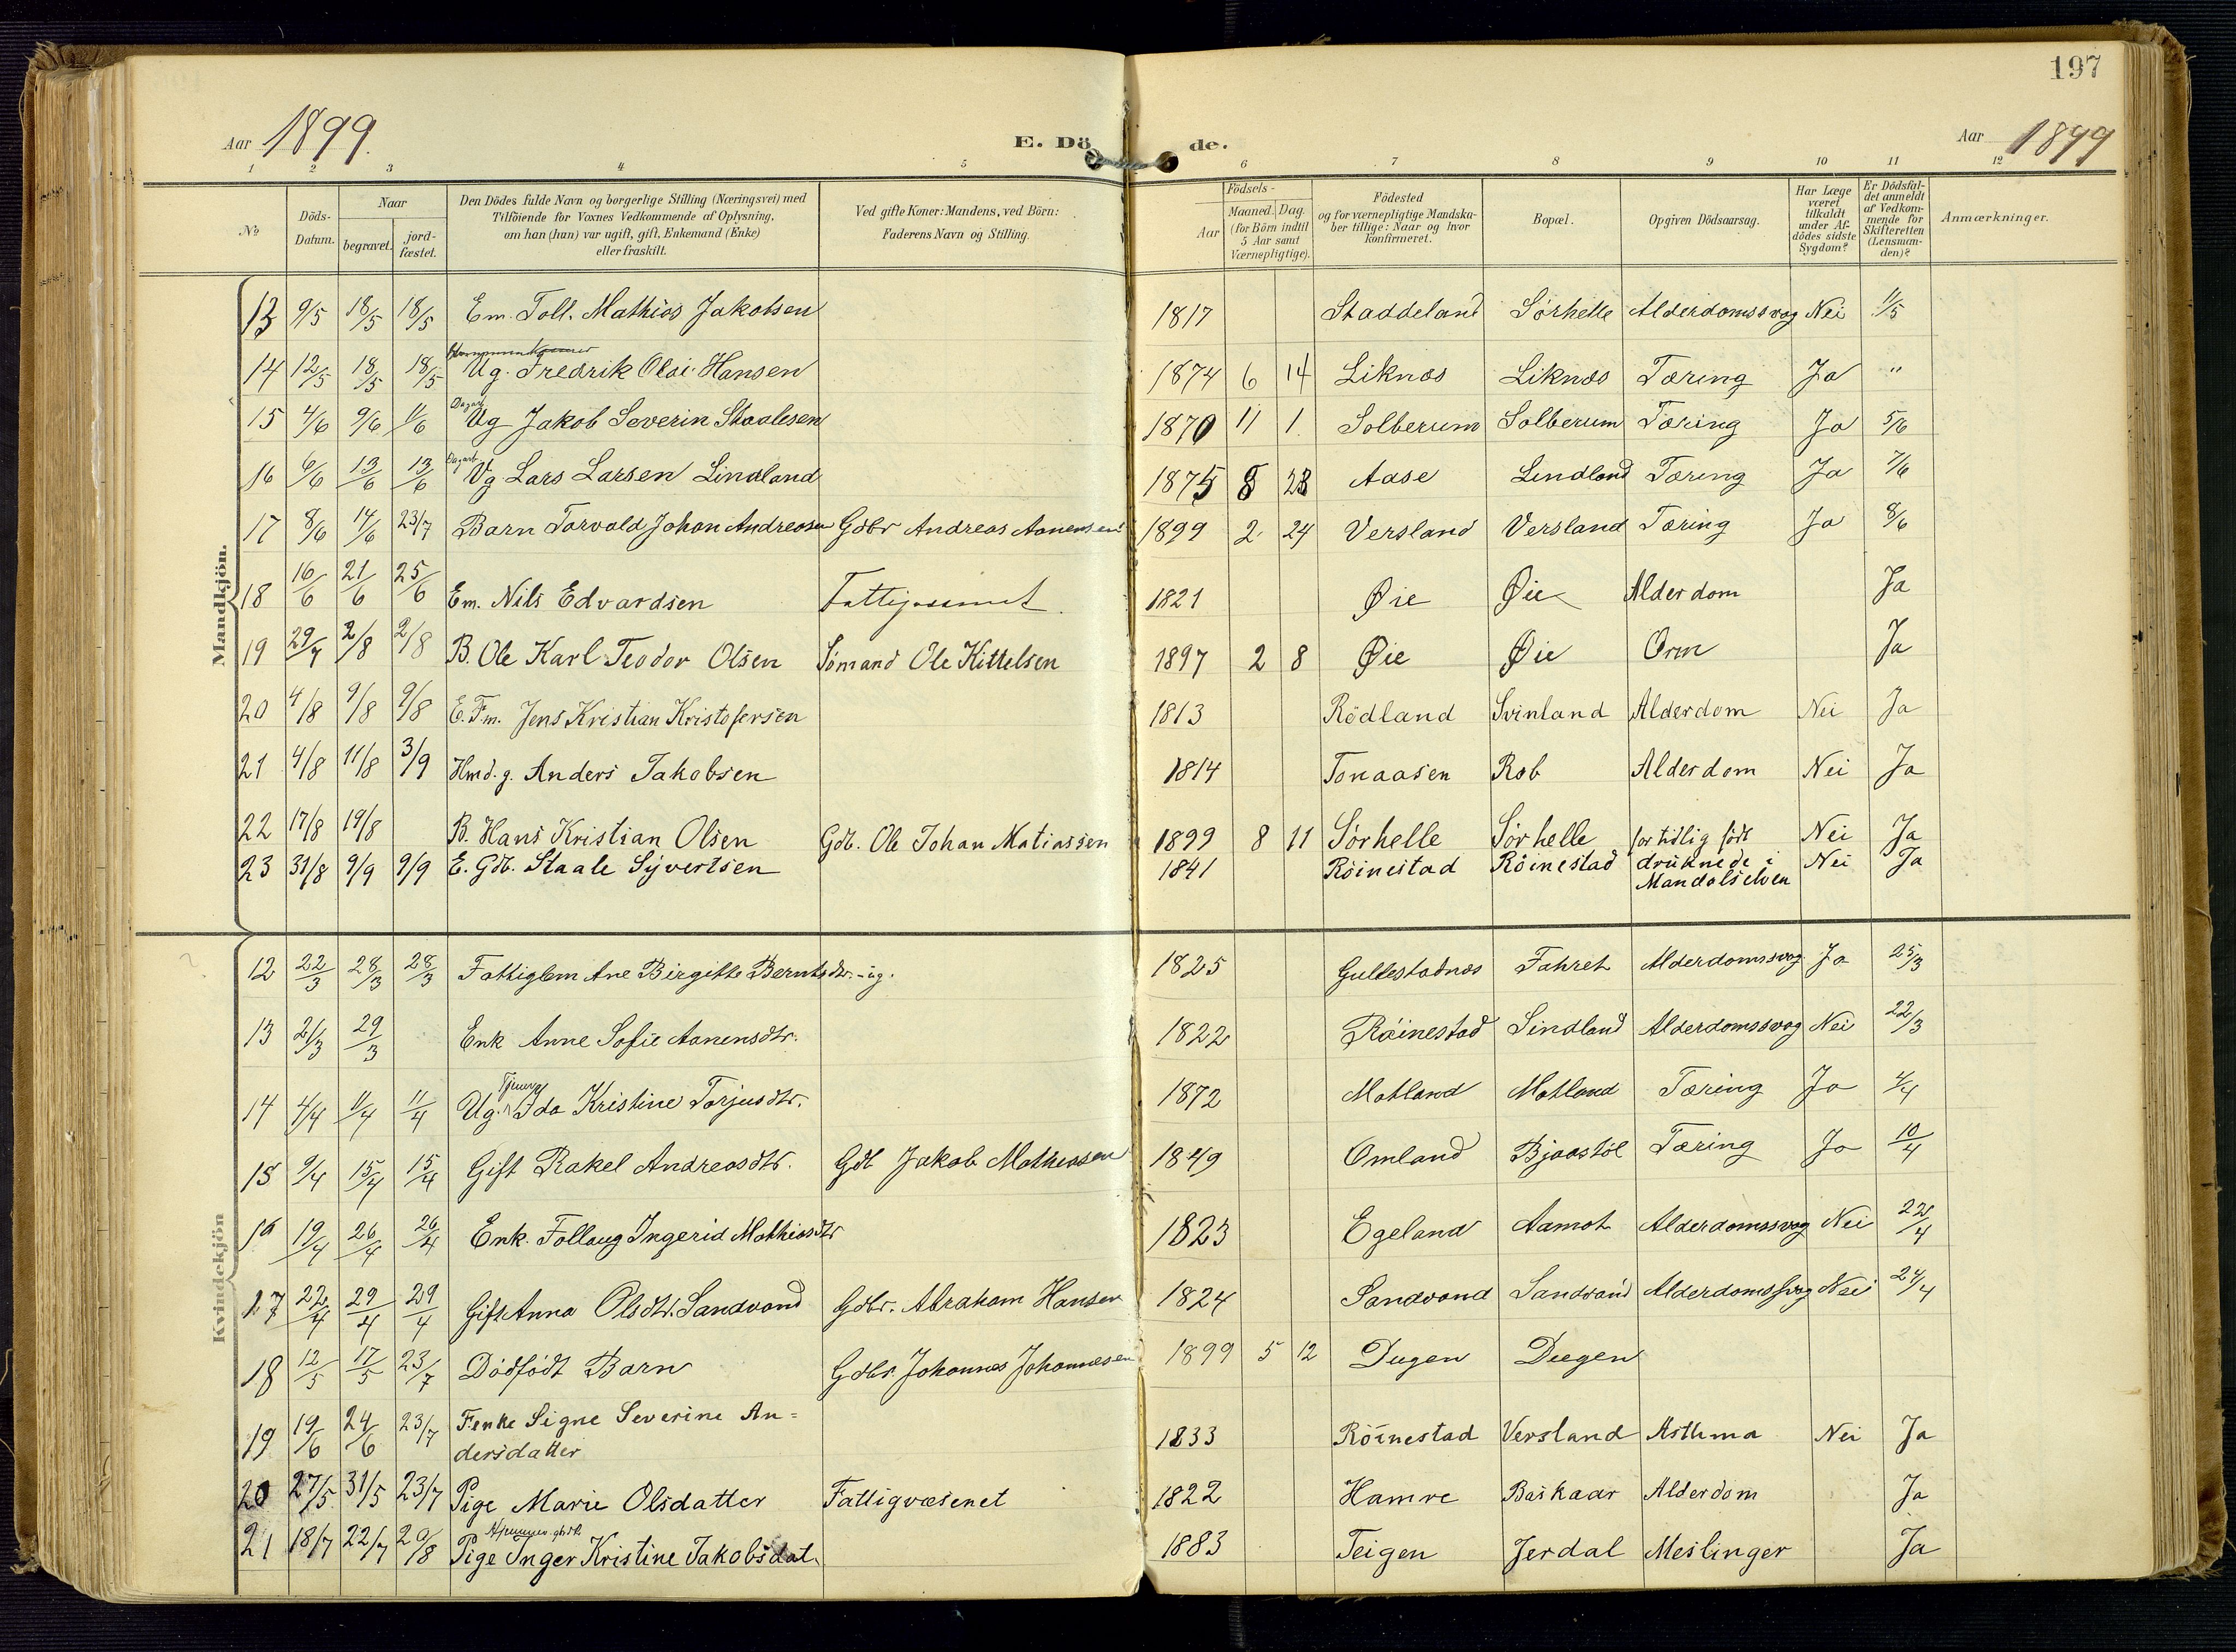 197
Aar 1899.
E. Döde.
Aar 1899
1 2 3 4 5 6 7 8 9 10 11 12
No
Döds-Datum.
Naar
begravet.
jord-fæstet.
Den Dödes fulde Navn og borgerlige Stilling (Næringsvei) med
Tilföiende for Voxnes Vedkommende af Oplysning,
om han (hun) var ugift, gift, Enkemand (Enke)
eller fraskilt.
Ved gifte Koner: Mandens, ved Börn:
Faderens Navn og Stilling.
Födsels-
Aar
Maaned. Dag.
(for Börn indtil
5 Aar samt
Værnepligtige).
Födested
og for værnepligtige Mandska-
ber tillige: Naar og hvor
konfirmeret.
Bopæl.
Opgiven Dödsaarsag.
Har Læge
været
tilkaldt
under Af-
dödes sidste
Sygdom?
Er Dödsfal-
det anmeldt
af Vedkom-
mende for
Skifteretten
(Lensman-
den)?
Anmærkninger.
Mandkjön.
13 9/5 18/5 18/5 Em. Toll. Mathias Jakobsen 1817 Staddeland Sörhelle Alderdomssvag Nei 11/5
14 12/5 18/5 18/5 Ug. Fredrik Olai Hansen 1874 6 14 Liknes Liknes Tæring Ja "
15 4/6 9/6 11/6 Dagarb Ug Jakob Severin Staalesen 1870 11 1 Solberum Solberum Tæring Ja 5/6
16 6/6 13/6 13/6 Dagarb Ug Lars Larsen Lindland 1875 8 28 Aase Lindland Tæring Ja 7/6
17 8/6 14/6 23/7 Barn Torvald Johan Andreasen Gdbr Andreas Aanensen 1899 2 24 Versland Versland Tæring Ja 8/6
18 16/6 21/6 25/6 Em. Nils Edvardsen 1821 Øie Øie Alderdom Ja
19 29/7 2/8 2/8 B. Ole Karl Teodor Olsen Sömand Ole Kittelsen 1897 2 8 Øie Øie Orm Ja
20 4/8 9/8 9/8 E.Fm. Jens Kristian Kristofersen 1813 Rödland Svinland Alderdom Nei Ja
21 4/8 11/8 3/9 Hmd. g. Anders Jakobsen 1814 Tonaasen Rob Alderdom Nei Ja
22 17/8 19/8 B. Hans Kristian Olsen Gdb. Ole Johan Matiassen 1899 8 11 Sörhelle Sörhelle for tidlig född Nei Ja
23 31/8 9/9 9/9 E. Gdb. Staale Syvertsen 1841 Röinestad Röinestad druknede i Nei Ja
Mandalselven
Kvindekjön
12 22/3 28/3 28/3 Fattiglem Ane Birgitte Berntsdtr. - ug. 1825 Gullestadnes Fahret Alderdomssvag Ja 25/3
13 21/3 29/3 Enk Anne Sofie Aanensdtr. 1822 Röinestad Lindland Alderdomssvag Nei 22/3
14 4/4 11/4 11/4 Ug. Ida Kristine Torjusdtr. 1872 Motland Motland Tæring Ja 4/4
15 9/4 15/4 15/4 Gift Rakel Andreasdtr. Gdb Jakob Mathiassen 1849 Omland Bjaastöl Tæring Ja 10/4
16 19/4 26/4 26/4 Enk. Tollaug Ingerid Mathiasdtr 1823 Egeland Aamot Alderdomssvag Nei 22/4
17 22/4 29/4 29/4 Gift Anna Olsdtr. Sandvand Gdbr. Abraham Hansen 1824 Sandvand Sandvand Alderdomssvag Nei 24/4
18 12/5 17/5 23/7 Dödfödt Barn Gdbr. Johannes Johannesen 1899 5 12 Dugen Dugen
19 19/6 24/6 23/7 F.enke Signe Severine An= 1833 Röinestad Versland Asthma Nei Ja
dersdatter
20 27/5 31/5 23/7 Pige Marie Olsdatter Fattigvæsenet 1822 Hamre Baskaar Alderdom Ja
21 18/7 22/7 20/8 Pige Inger Kristine Jakobsdat. 1883 Teigen Jerdal Meslinger Ja